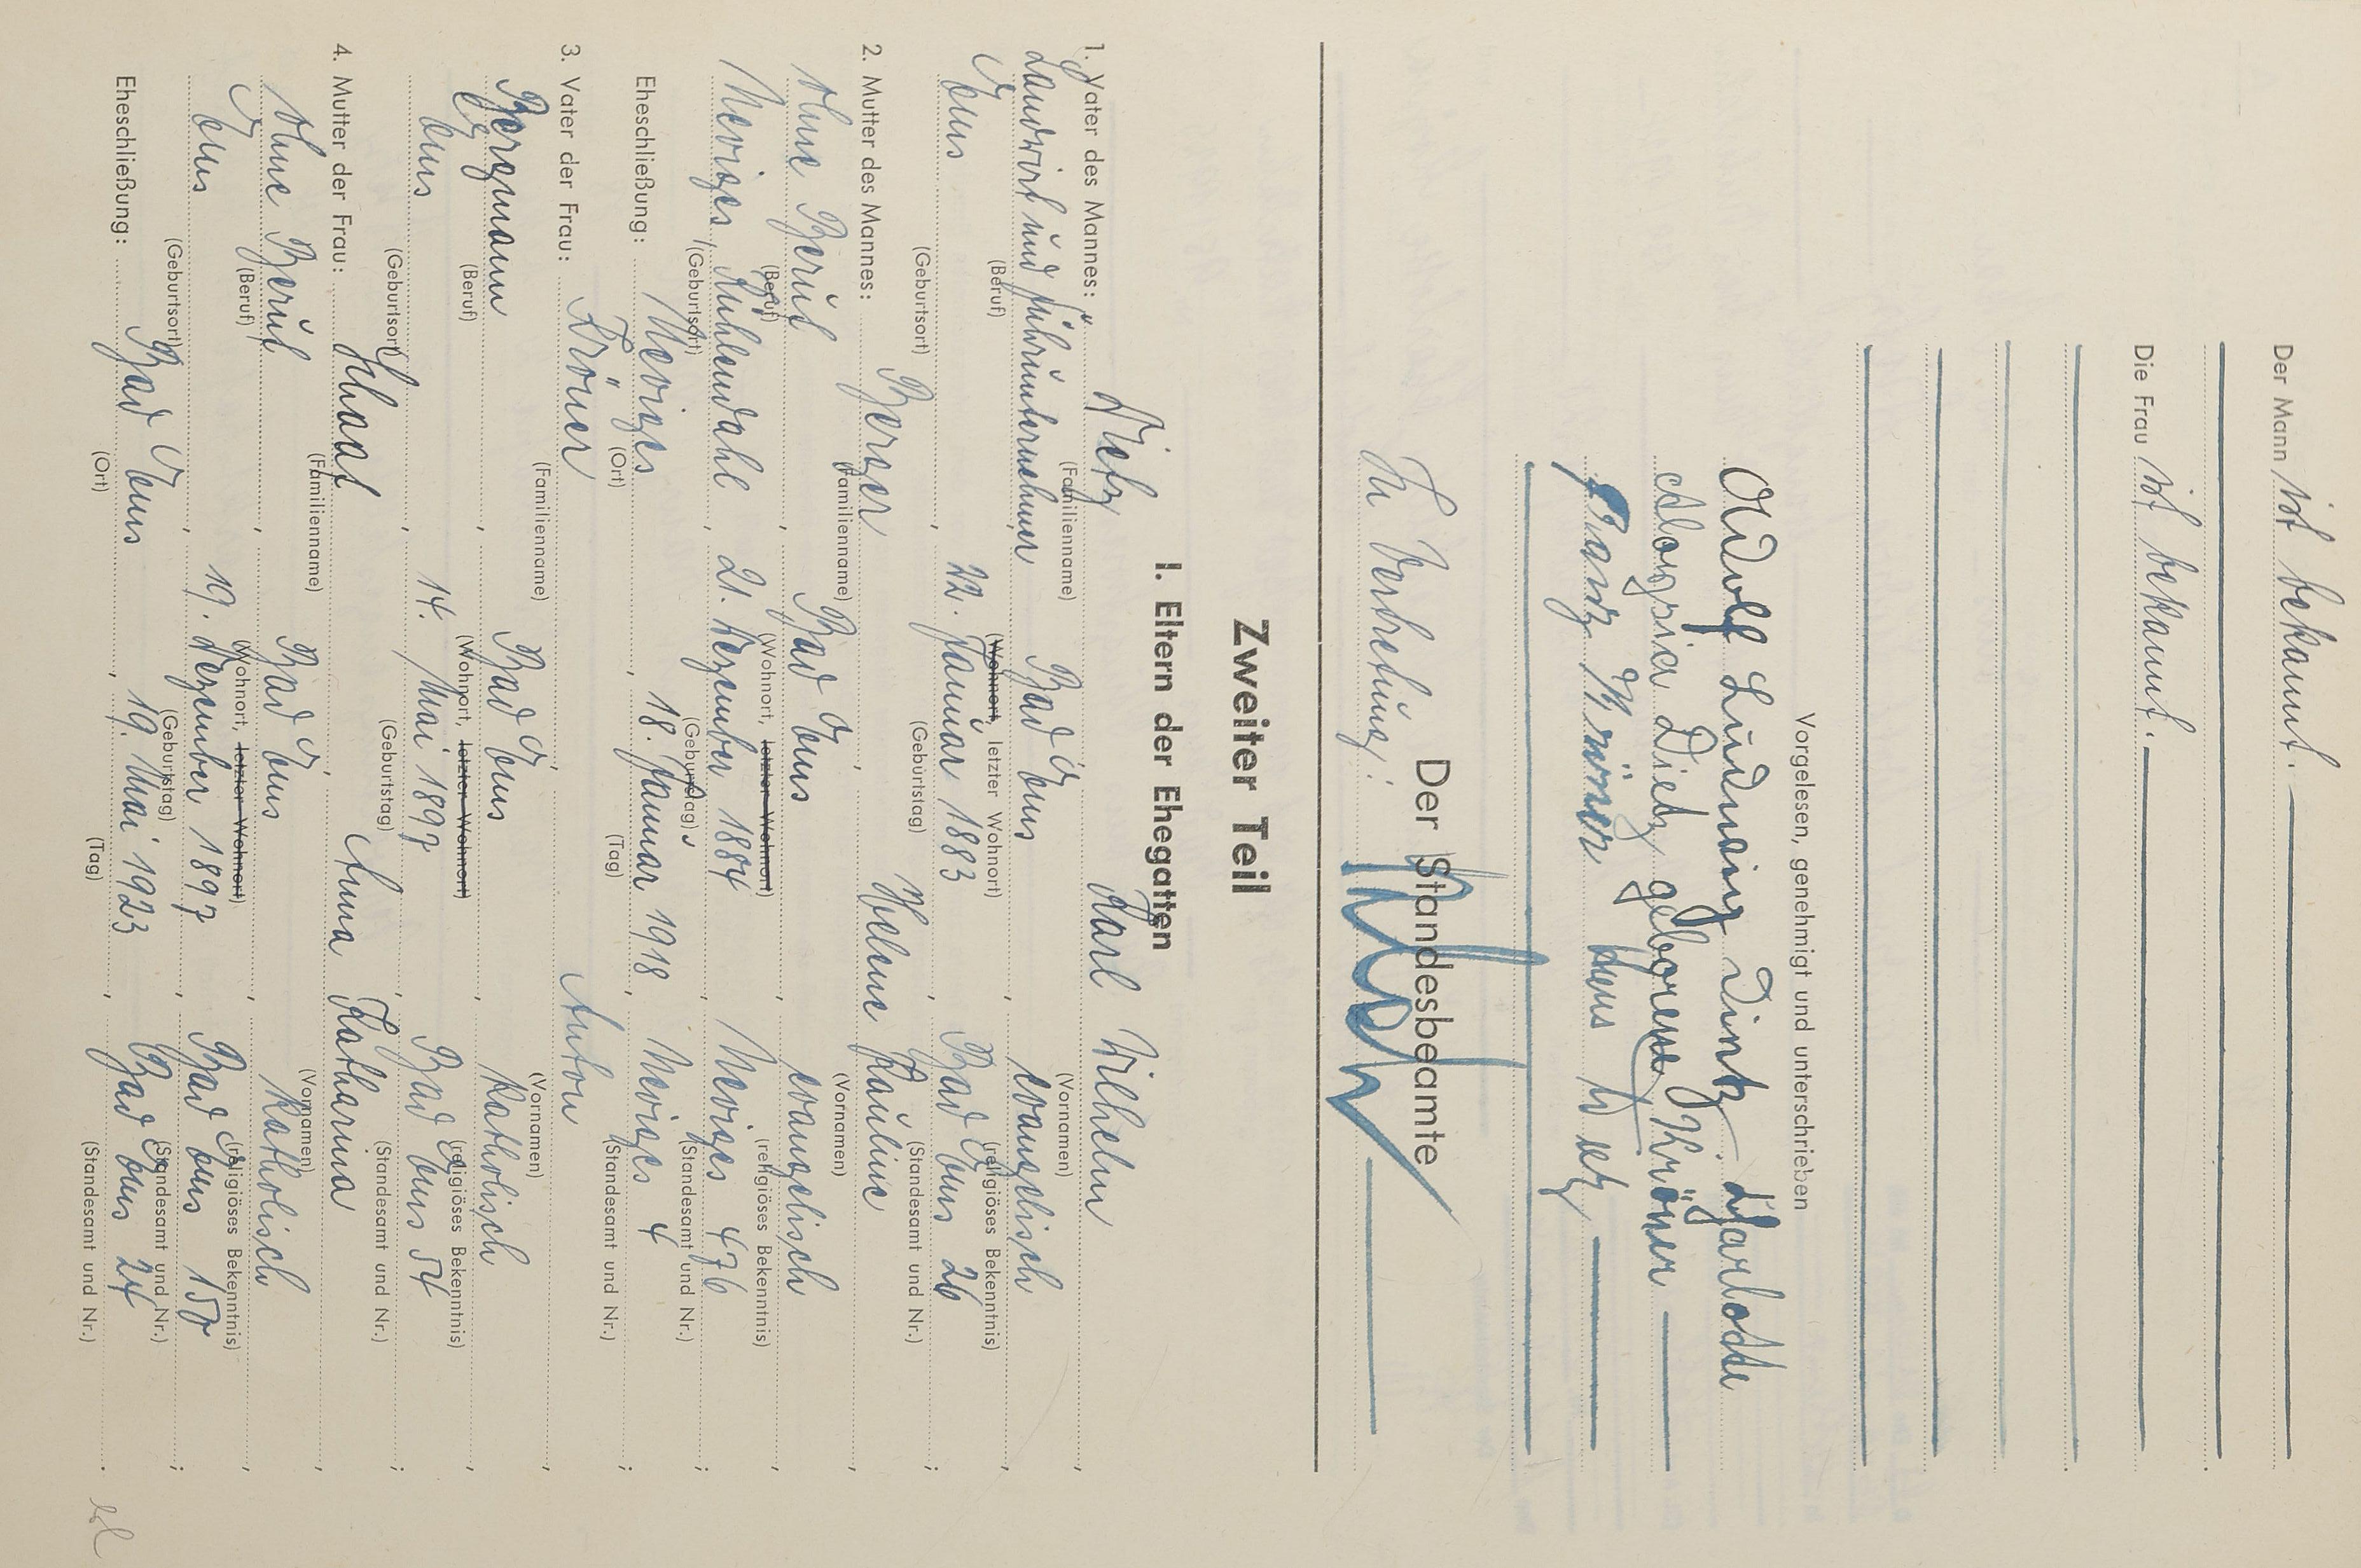 Der Mann ist bekannt.
Die Frau ist bekannt.
Vorgelesen, genehmigt und unterschrieben
Adolf Ludwig Dietz
Dietz geborene Kröner
Franz Kröner
Der Standesbeamte
In Vertretung:
Zweiter Teil
I. Eltern der Ehegatten
1. Vater des Mannes: Dietz Karl Wilhelm,
(Familienname) (Vornamen)
Landwirt und Fuhrunternehmer, Bad Ems, evangelisch,
(Beruf) (Wohnort, letzter Wohnort) (religiöses Bekenntnis)
Ems, 22. Januar 1883, Bad Ems 26;
(Geburtsort) (Geburtstag) (Standesamt und Nr.)
2. Mutter des Mannes: Berger, Helene Pauline,
(Familienname) (Vornamen)
ohne Beruf, Bad Ems, evangelisch,
(Beruf) (Wohnort, letzter Wohnort) (religiöses Bekenntnis)
Neviges, Kuhlendahl, 21. Dezember 1884, Neviges 476;
(Geburtsort) (Geburtstag) (Standesamt und Nr.)
Eheschließung: Neviges, 18. Januar 1918, Neviges 4;
(Ort) (Tag) (Standesamt und Nr.)
3. Vater der Frau: Kröner, Anton,
(Familienname) (Vornamen)
Bergmann, Bad Ems, katholisch,
(Beruf) (Wohnort, letzter Wohnort) (religiöses Bekenntnis)
Ems, 14. Mai 1897, Bad Ems 54;
(Geburtsort) (Geburtstag) (Standesamt und Nr.)
4. Mutter der Frau: Anna Katharina,
(Familienname) (Vornamen)
ohne Beruf, Bad Ems, katholisch,
(Beruf) (Wohnort, letzter Wohnort) (religiöses Bekenntnis)
Ems, 19. Dezember 1897, Bad Ems
(Geburtsort) (Geburtstag) (Standesamt und Nr.)
Eheschließung: Bad Ems, 19. Mai 1923, Bad Ems 24.
(Ort) (Tag) (Standesamt und Nr.)